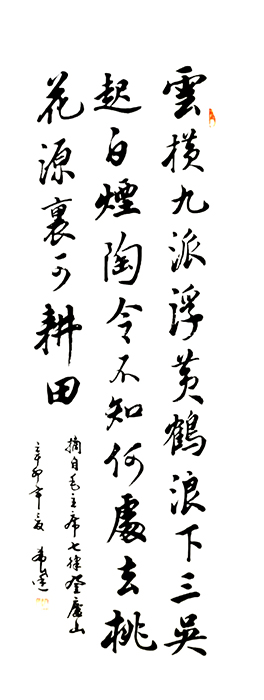 雲橫九派浮黃鶴浪下三吳
起白煙陶令不知何處去桃
花源裏可耕田
摘自毛主席七律登廬山
辛卯年夏